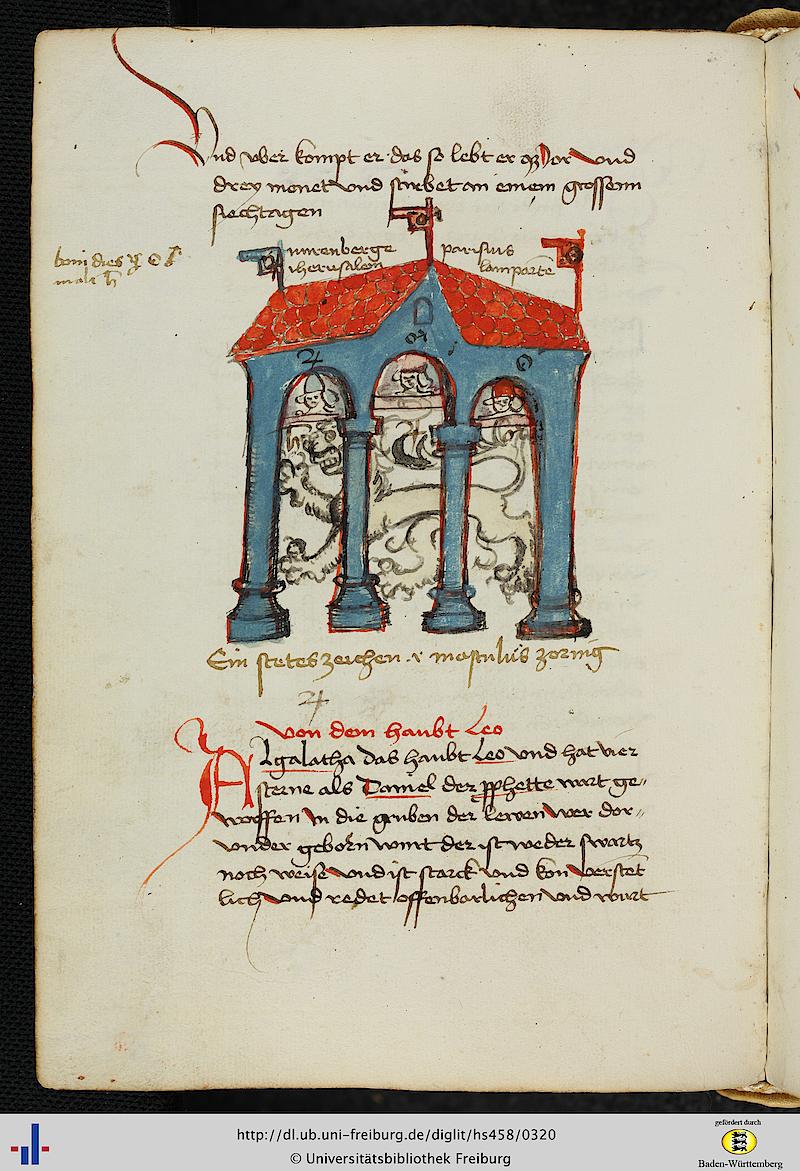 Vnd vber kompt er das so lebt er vnd
drey monet vnd stirbet an einem grossenn
siechtagen
boni dies
mali ♄
nurenberge
iherusalem
parisius
lamparte
♃
♃
Ein stetes zeichen masculus zornig
♃
von dem haubt Leo
Algalatha das haubt Leo vnd hat vier
sterne als Daniel der pphette wart ge„
worffen in die gruben der lewen wer dor„
vnder geborn wirt der ist weder swartz
noch weise vnd ist starck vnd kon verstet
lich vnd redet offenbarlichen vnd wirt
http://dl.ub.uni-freiburg.de/diglit/hs458/0320
© Universitätsbibliothek Freiburg
gefördert durch
Baden-Württemberg